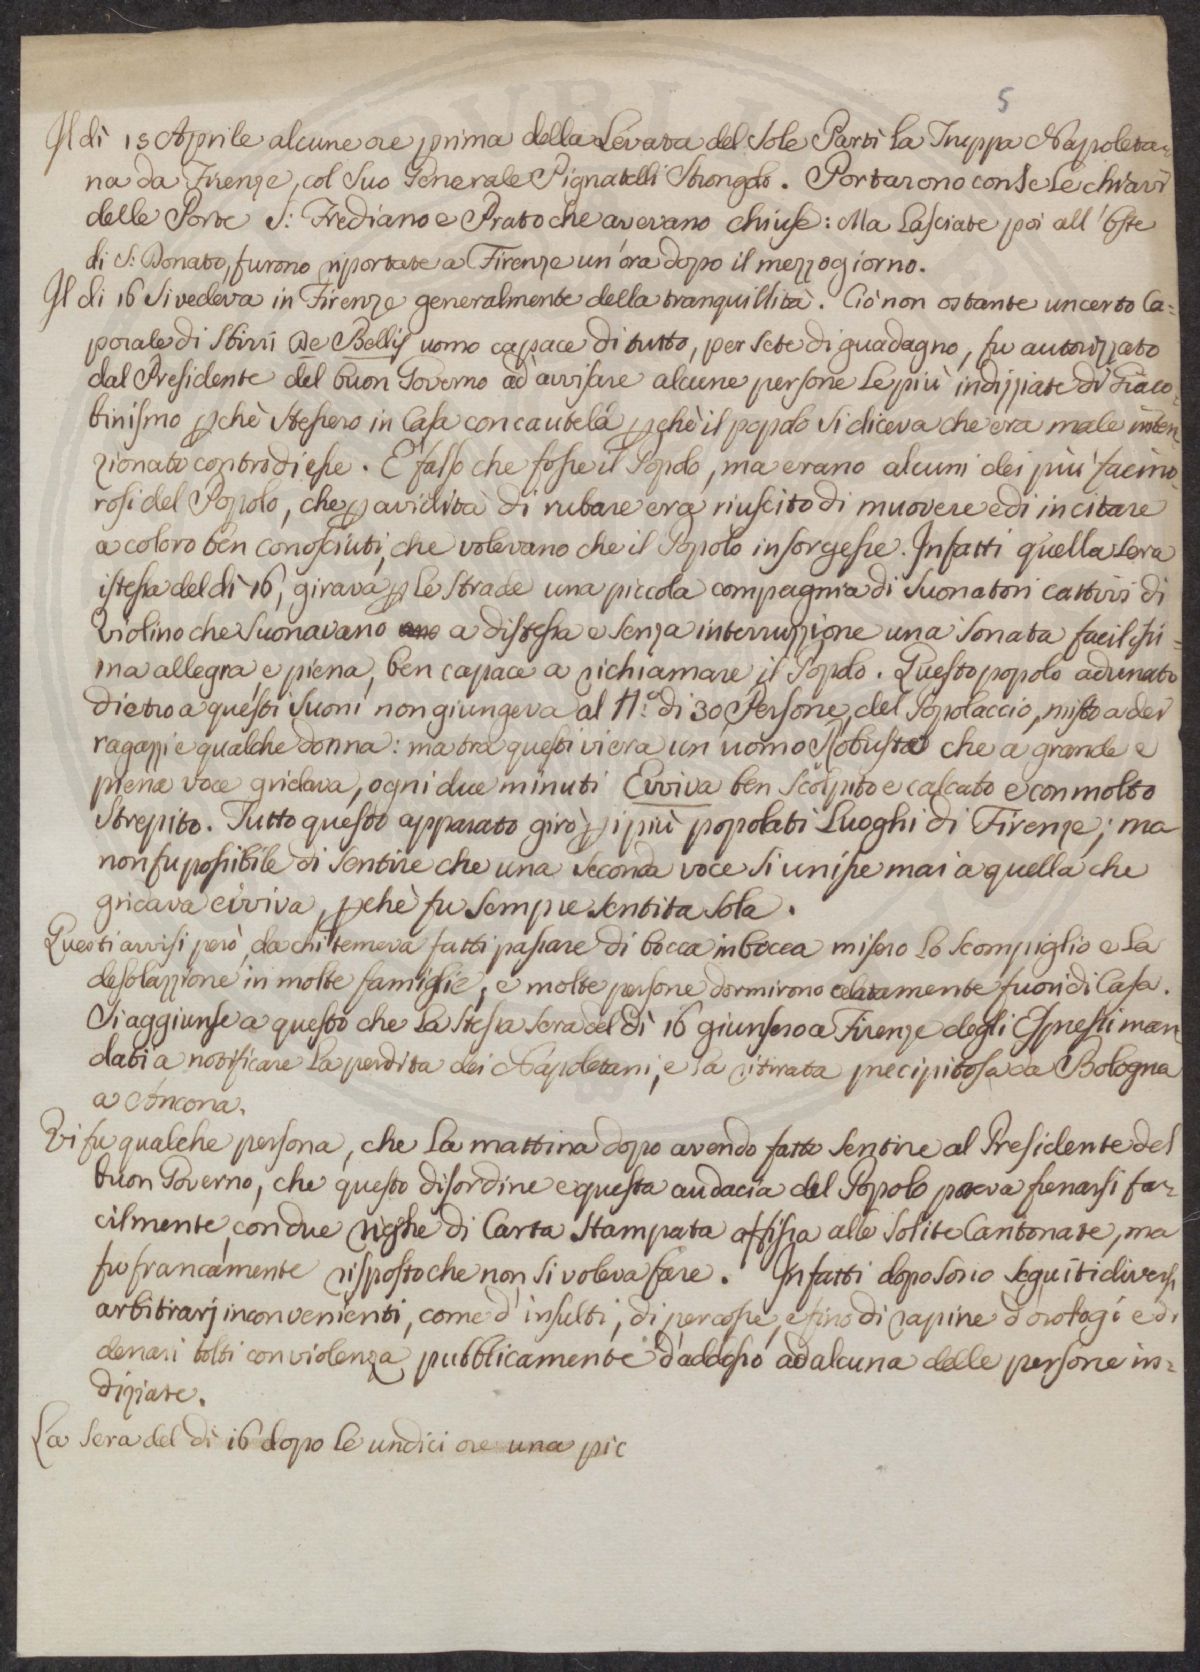 5
Il dì 15 Aprile alcune ore prima della Levata del Sole Partì la Truppa Napoleta=
na da Firenze, col Suo Generale Pignatelli Strongoli. Portarono con Se le chiavi
delle Porte S: Frediano e Prato che avevano chiuse: Ma Lasciate poi all'Oste
di S: Donato, furono riportate a Firenze un'ora dopo il mezzogiorno.
Il di 16 Si vedeva in Firenze generalmente della tranquillità. Ciò non ostante un certo Ca=
porale di Sbirri De Bellis uomo capace di tutto, per sete di guadagno, fu autorizzato
dal Presidente del buon Governo ad avvisare alcune persone Le più indizziate di Giaco=
binismo pchè Stessero in Casa con cautela pchè il popolo Si diceva che era male inten
zionato contro di esse. E' falso che fosse il Popolo, ma erano alcuni dei più facino
rosi del Popolo, che p avidità di rubare era riuscito di muovere e di incitare
a coloro ben conosciuti, che volevano che il Popolo insorgesse. Infatti quella Sera
istessa del dì 16, girava p Le Strade una piccola compagnia di Suonatori cattivi di
Violino che Suonavano a distesa e Senza interruzzione una Sonata facilissi=
ma allegra e piena, ben capace a richiamare il Popolo. Questo popolo adunato
dietro a questi Suoni non giungeva al N.º di 30 Persone, del Popolaccio, misto a dei
ragazzi e qualche donna: ma tra questi vi era un uomo Robusto che a grande e
piena voce gridava, ogni due minuti Evviva ben Scolpito e calcato e con molto
Strepito. Tutto questo apparato girò p i più popolati Luoghi di Firenze; ma
non fu possibile di Sentire che una Seconda voce Si unisse mai a quella che
gridava evviva, pchè fu Sempre Sentita Sola.
Questi avvisi però, da chi temeva fatti passare di bocca in bocca misero Lo Scompiglio e La
desolazzione in molte famiglie, e molte persone dormirono celatamente fuori di Casa.
Si aggiunse a questo che La Stessa Sera del dì 16 giunsero a Firenze degli Espressi man
dati a notificare La perdita dei Napoletani, e La ritirata precipitosa da Bologna
a Ancona.
Vi fu qualche persona, che La mattina dopo avendo fatto Sentire al Presidente del
buon Governo, che questo disordine e questa audacia del Popolo poteva frenarsi fa=
cilmente con due righe di Carta Stampata affissa alle Solite Cantonate, ma
fu francamente risposto che non Si voleva fare. Infatti dopo Sono Seguiti diversi
arbitrarj inconvenienti, come d'insulti, di percosse, e fino di rapine d'orologi e di
denari tolti con violenza pubblicamente d'addosso ad alcuna delle persone in=
dizziate.
La Sera del dì 16 dopo le undici ore una pic